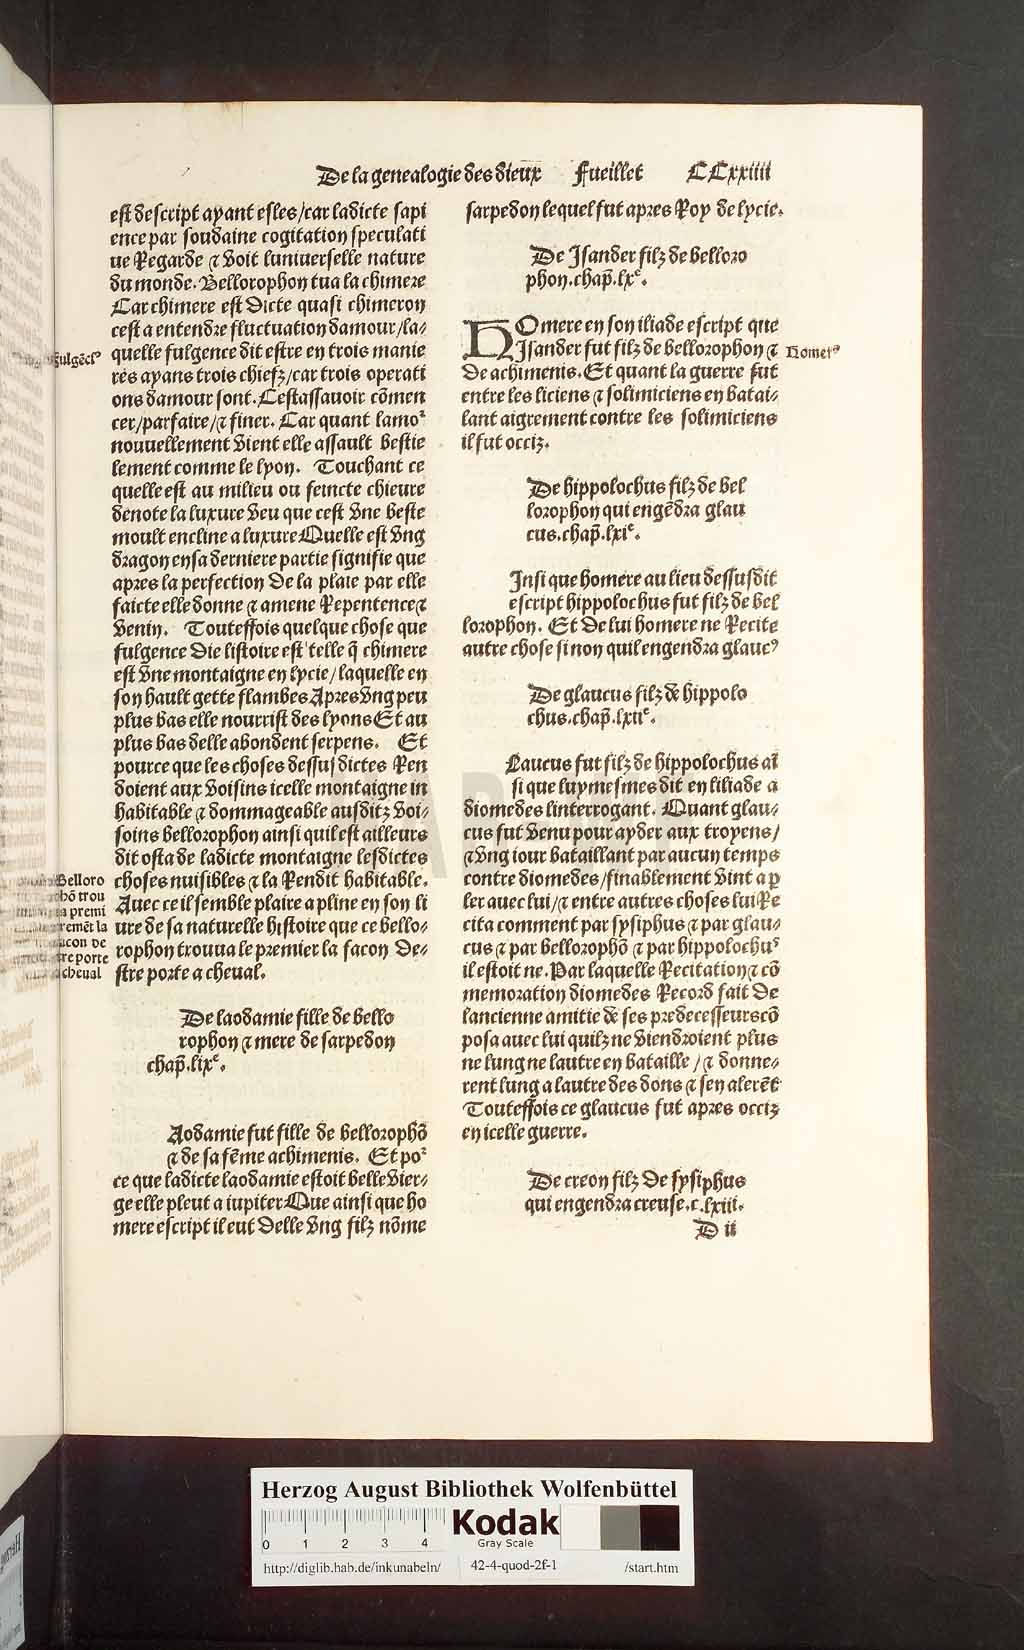 De la genealogie des dieux Fueillet CCxxiiii
est descript ayant esles/car ladicte sapi
ence par soudaine cogitation speculati
ue Regarde ⁊ voit luniuerselle nature
du monde. Bellorophon tua la chimere
Car chimere est dicte quasi chimeron
cest a entendre fluctuation damour/la-
quelle fulgence dit estre en trois manie
res ayans trois chiefz/car trois operati
ons damour sont. Cestassauoir cōmen
cer/parfaire/⁊ finer. Car quant lamoʳ
nouuellement vient elle assault bestie
lement comme le lyon. Touchant ce
quelle est au milieu ou feincte chieure
denote la luxure veu que cest vne beste
moult encline a luxure Quelle est vng
dragon en sa derniere partie signifie que
apres la perfection de la plaie par elle
faicte elle donne ⁊ amene Repentence ⁊
venin. Touteffois quelque chose que
fulgence die listoire est telle q̄ chimere
est vne montaigne en lycie/laquelle en
son hault gette flambes Apres vng peu
plus bas elle nourrist des lyons Et au
plus bas delle abondent serpens. Et
pource que les choses dessusdictes Ren
doient aux voisins icelle montaigne in
habitable ⁊ dommageable ausditz voi-
soins bellorophon ainsi quil est ailleurs
dit osta de ladicte montaigne lesdictes
choses nuisibles ⁊ la Rendit habitable.
Auec ce il semble plaire a pline en son li
ure de sa naturelle histoire que ce bello-
rophon trouua le premier la facon de-
stre porte a cheual.
fulgēcꝰ
Belloro
phō trou
ua premi
remēt la
facon de
stre porte
a cheual
De laodamie fille de bello
rophon ⁊ mere de sarpedon
chap̄.lixᵉ.
Aodamie fut fille de bellorophō
⁊ de sa fēme achimenis. Et poʳ
ce que ladicte laodamie estoit belle vier-
ge elle pleut a iupiter Que ainsi que ho
mere escript il eut delle vng filz nōme
sarpedon lequel fut apres Roy de lycie.
De Isander filz de belloro
phon.chap̄.lxᵉ.
HOmere en son iliade escript que
Isander fut filz de bellorophon ⁊
de achimenis. Et quant la guerre fut
entre les liciens ⁊ solimiciens en batai-
lant aigrement contre les solimiciens
il fut occiz.
Homerꝰ
De hippolochus filz de bel
lorophon qui engēdra glau
cus.chap̄.lxiᵉ.
Insi que homere au lieu dessusdit
escript hippolochus fut filz de bel
lorophon. Et de lui homere ne Recite
autre chose si non quil engendra glaucꝰ
De glaucus filz de hippolo
chus.chap̄.lxiiᵉ.
Laucus fut filz de hippolochus aī
si que luymesmes dit en liliade a
diomedes linterrogant. Quant glau-
cus fut venu pour ayder aux troyens/
⁊ vng iour bataillant par aucun temps
contre diomedes/finablement vint a ꝑ
ler auec lui/⁊ entre autres choses lui Re
cita comment par sysiphus ⁊ par glau-
cus ⁊ par bellorophō ⁊ par hippolochuˢ
il estoit ne. Par laquelle Recitation ⁊ cō
memoration diomedes Record fait de
lancienne amitie de ses predecesseurs cō
posa auec lui quilz ne viendroient plus
ne lung ne lautre en bataille/⁊ donne-
rent lung a lautre des dons ⁊ sen alerēt
Touteffois ce glaucus fut apres occiz
en icelle guerre.
De creon filz de sysiphus
qui engendra creuse.c.lxiii.
D ii
Herzog August Bibliothek Wolfenbüttel
0 1 2 3 4
Kodak
Gray Scale
http://diglib.hab.de/inkunabeln/ 42-4-quod-2f-1 /start.htm